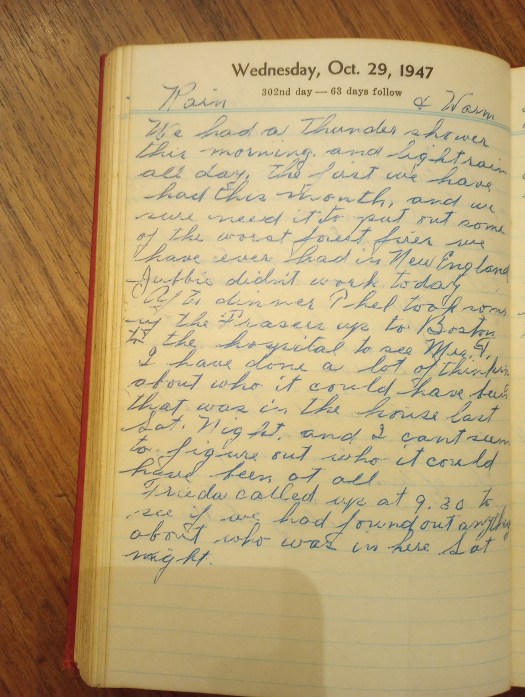 Wednesday, Oct. 29, 1947
302nd day — 63 days follow
Rain & Warm
We had a thunder shower
this morning. and light rain
all day, the first we have
had this month, and we
sure need it to put out some
of the worst forest fires we
have ever had in New England
didn't work today
dinner Phel took some
of the Frasers up to Boston
to the hospital to see Mrs. F.
I have done a lot of thinkin
about who it could have been
that was in the house last
Sat. Night. and I cant seem
to figure out who it could
have been at all
Frieda called up at 9.30 to
see if we had found out anything
about who was in here Sat
night.